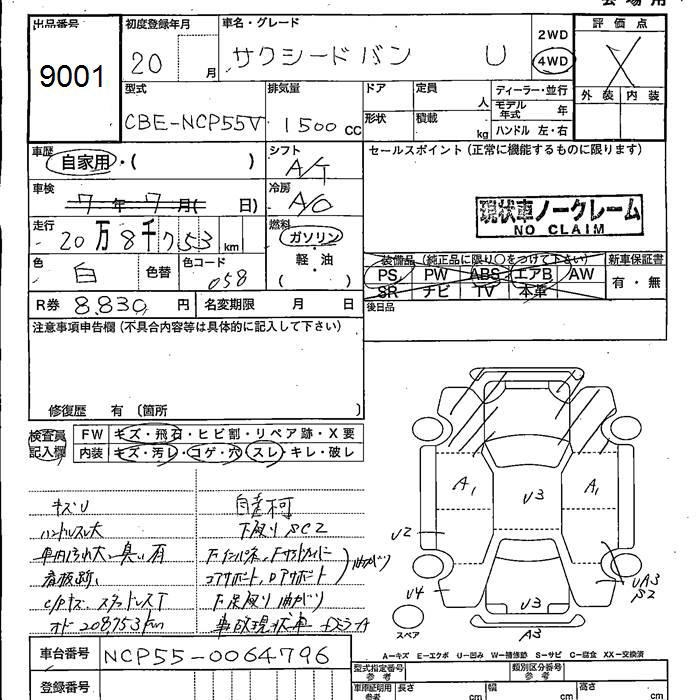 会場用
出品番号 初度登録年月 車名・グレード 2WD 評価点
9001 20 月 サクシードバン U 4WD X
型式 排気量 ドア 定員 人 ディーラー・並行 外装 内装
CBE-NCP55V 1500 cc 形状 積載 kg モデル年式 年
ハンドル 左・右
車歴 自家用・( ) シフト A/T セールスポイント(正常に機能するものに限ります)
車検 7年7月( 日) 冷房 A/C
現状車ノークレーム
NO CLAIM
走行 20万8千753 km 燃料 ガソリン
軽・油
( )
色 白 色替 色コード 058
装備品(純正品に限り○をつけて下さい) 新車保証書
PS PW ABS エアB AW 有・無
SR ナビ TV 本革
R券 8,830 円 名変期限 月 日 後日品
注意事項申告欄(不具合内容等は具体的に記入して下さい)
修復歴 有〔箇所 〕
検査員記入欄 FW キズ・飛石・ヒビ割・リペア跡・X要
内装 キズ・汚レ・コゲ・穴・スレ・キレ・破レ
キズU 自走不可
ハンドルスレ大 下廻りSC2
車内汚れ大 臭い有
看板跡
コアサポート
C/Pキズ スタッドレスT 下廻り曲がり
メーター 208753km 事故現状車
A1 U3 A1
U2
U4 U3 UA3
S2
A3
スペア
A=キズ E=エクボ U=凹み W=補修跡 S=サビ C=腐食 XX=交換済
車台番号 NCP55-0064796
型式指定番号 参考 類別区分番号 参考
登録番号 車庫証明用 参考 長さ cm 幅 cm 高さ cm